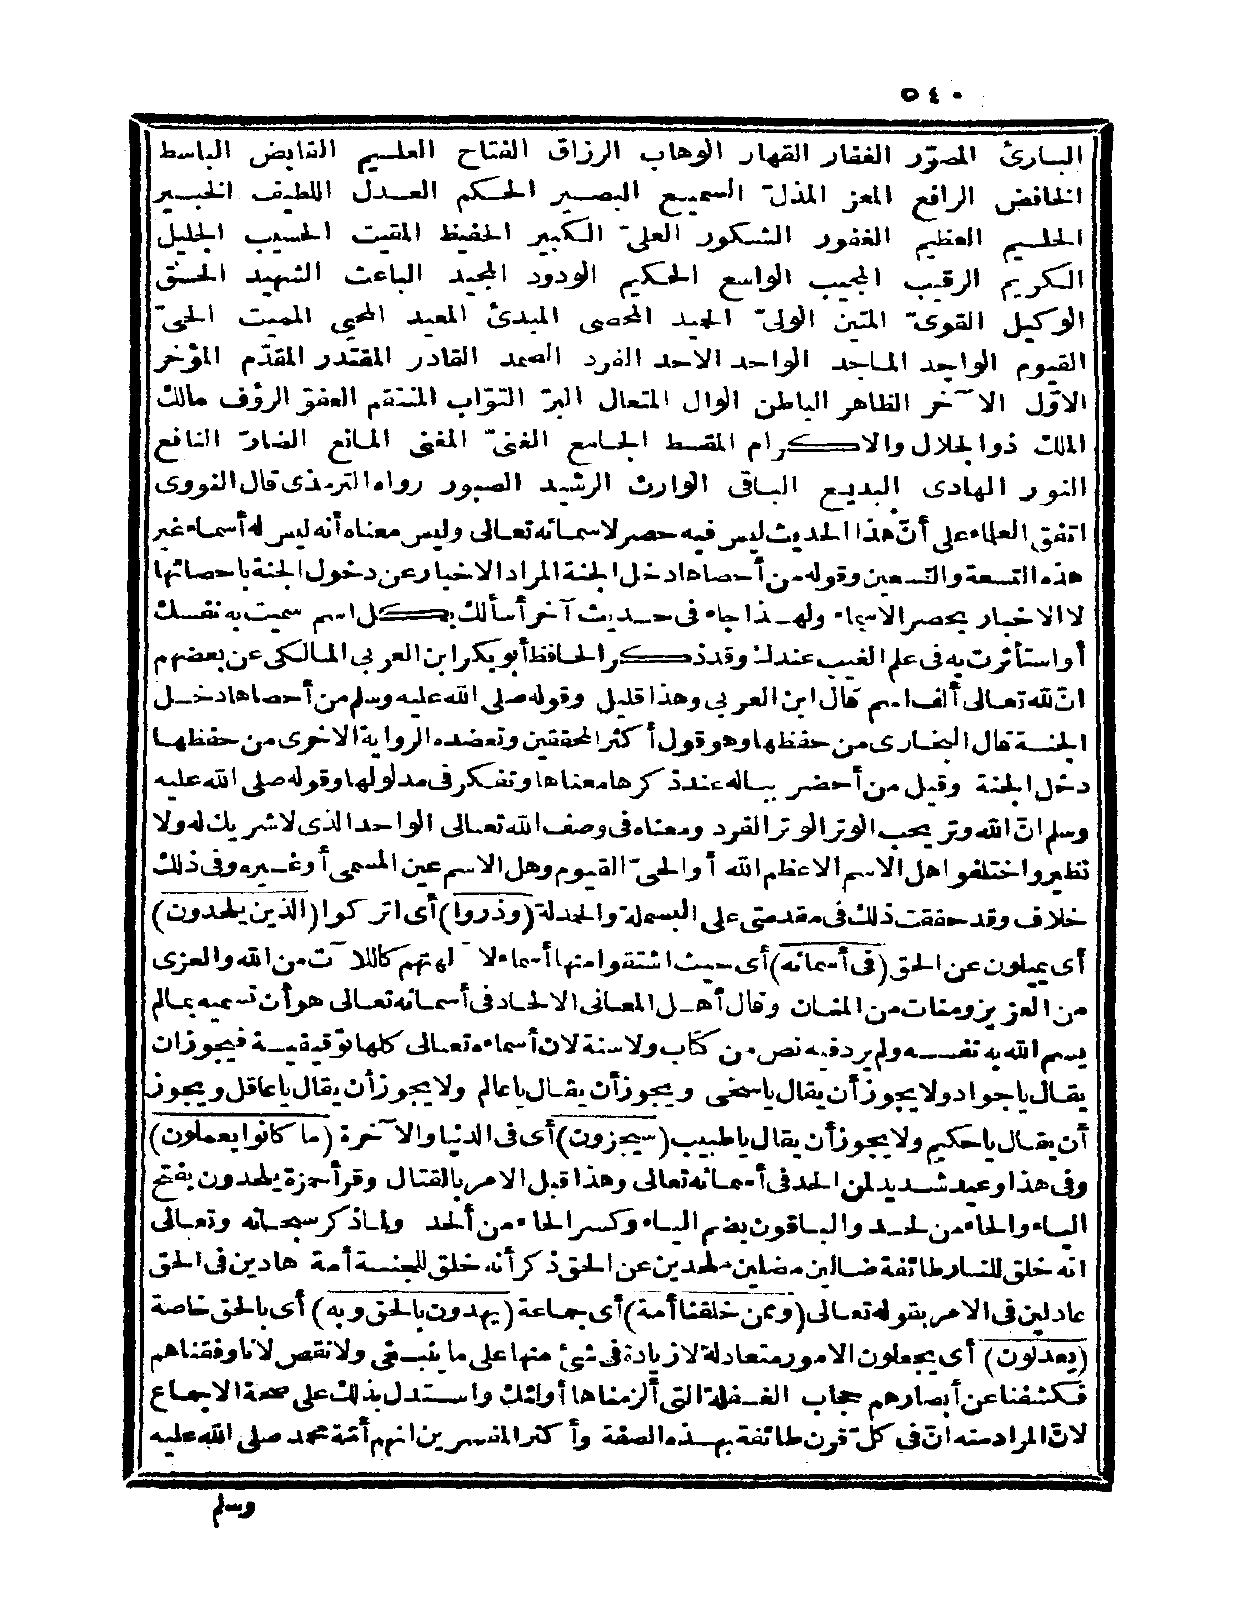 ٥٤٠
البارئ المصوّر الغفار القهار الوهاب الرزاق الفتاح العليم القابض الباسط
الخافض الرافع المعز المذل السميع البصير الحكم العدل اللطيف الخبير
الحليم العظيم الغفور الشكور العلىّ الكبير الحفيظ المقيت الحسيب الجليل
الكريم الرقيب المجيب الواسع الحكيم الودود المجيد الباعث الشهيد الحق
الوكيل القوىّ المتين الولىّ الحميد المحصى المبدئ المعيد المحيى المميت الحىّ
القيوم الواجد الماجد الواحد الاحد الفرد الصمد القادر المقتدر المقدّم المؤخر
الاوّل الآخر الظاهر الباطن الوال المتعال البرّ التوّاب المنتقم العفوّ الرؤف مالك
الملك ذو الجلال والاكرام المقسط الجامع الغنىّ المغنى المانع الضارّ النافع
النور الهادى البديع الباقى الوارث الرشيد الصبور رواه الترمذى قال النووى
اتفق العلماء على أنّ هذا الحديث ليس فيه حصر لاسمائه تعالى وليس معناه أنه ليس له أسماء غير
هذه التسعة والتسعين وقوله من أحصاها دخل الجنة المراد الاخبار عن دخول الجنة باحصائها
لا الاخبار بحصر الاسماء ولهذا جاء فى حديث آخر أسألك بكل اسم سميت به نفسك
أو استأثرت به فى علم الغيب عندك وقد ذكر الحافظ أبو بكر ابن العربى المالكى عن بعضهم
انّ لله تعالى ألف اسم قال ابن العربى وهذا قليل وقوله صلى الله عليه وسلم من أحصاها دخل
الجنة قال البخارى من حفظها وهو قول أكثر المحققين وتعضده الرواية الاخرى من حفظها
دخل الجنة وقيل من أحضر بباله عند ذكرها معناها وتفكر فى مدلولها وقوله صلى الله عليه
وسلم انّ الله وتر يحب الوتر الوتر الفرد ومعناه فى وصف الله تعالى الواحد الذى لا شريك له ولا
نظير واختلفوا هل الاسم الاعظم الله أو الحىّ القيوم وهل الاسم عين المسمى أو غيره وفى ذلك
خلاف وقد حققت ذلك فى مقدمتى على البسملة والحمدلة (وذروا) أى اتركوا (الذين يلحدون)
أى يميلون عن الحق (فى أسمائه) أى حيث اشتقوا منها أسماء لآلهتهم كاللات من الله والعزى
من العزيز ومنات من المنان وقال أهل المعانى الالحاد فى أسمائه تعالى هو أن تسميه بمالم
يسم الله به نفسه ولم يرد فيه نص من كتاب ولا سنة لان أسماءه تعالى كلها توقيفية فيجوز ان
يقال ياجواد ولا يجوز أن يقال ياسخى ويجوز أن يقال ياعالم ولا يجوز أن يقال ياعاقل ويجوز
أن يقال ياحكيم ولا يجوز أن يقال ياطبيب (سيجزون) أى فى الدنيا والآخرة (ما كانوا يعملون)
وفى هذا وعيد شديد لمن الحد فى أسمائه تعالى وهذا قبل الامر بالقتال وقرأ حمزة يلحدون بفتح
الياء والحاء من لحد والباقون بضم الياء وكسر الحاء من ألحد ولما ذكر سبحانه وتعالى
انه خلق للنار طائفة ضالين مضلين ملحدين عن الحق ذكر أنه خلق للجنة أمة هادين فى الحق
عادلين فى الامر بقوله تعالى (وممن خلقنا أمة) أى جماعة (يهدون بالحق وبه) أى بالحق خاصة
(يعدلون) أى يجعلون الامور متعادلة لا زيادة فى شئ منها على ما ينبغى ولا نقص لانا وفقناهم
فكشفنا عن أبصارهم حجاب الغفلة التى ألزمناها أولئك واستدل بذلك على صحة الاجماع
لانّ المراد منه انّ فى كل قرن طائفة بهذه الصفة وأكثر المفسرين انهم أمّة محمد صلى الله عليه
وسلم